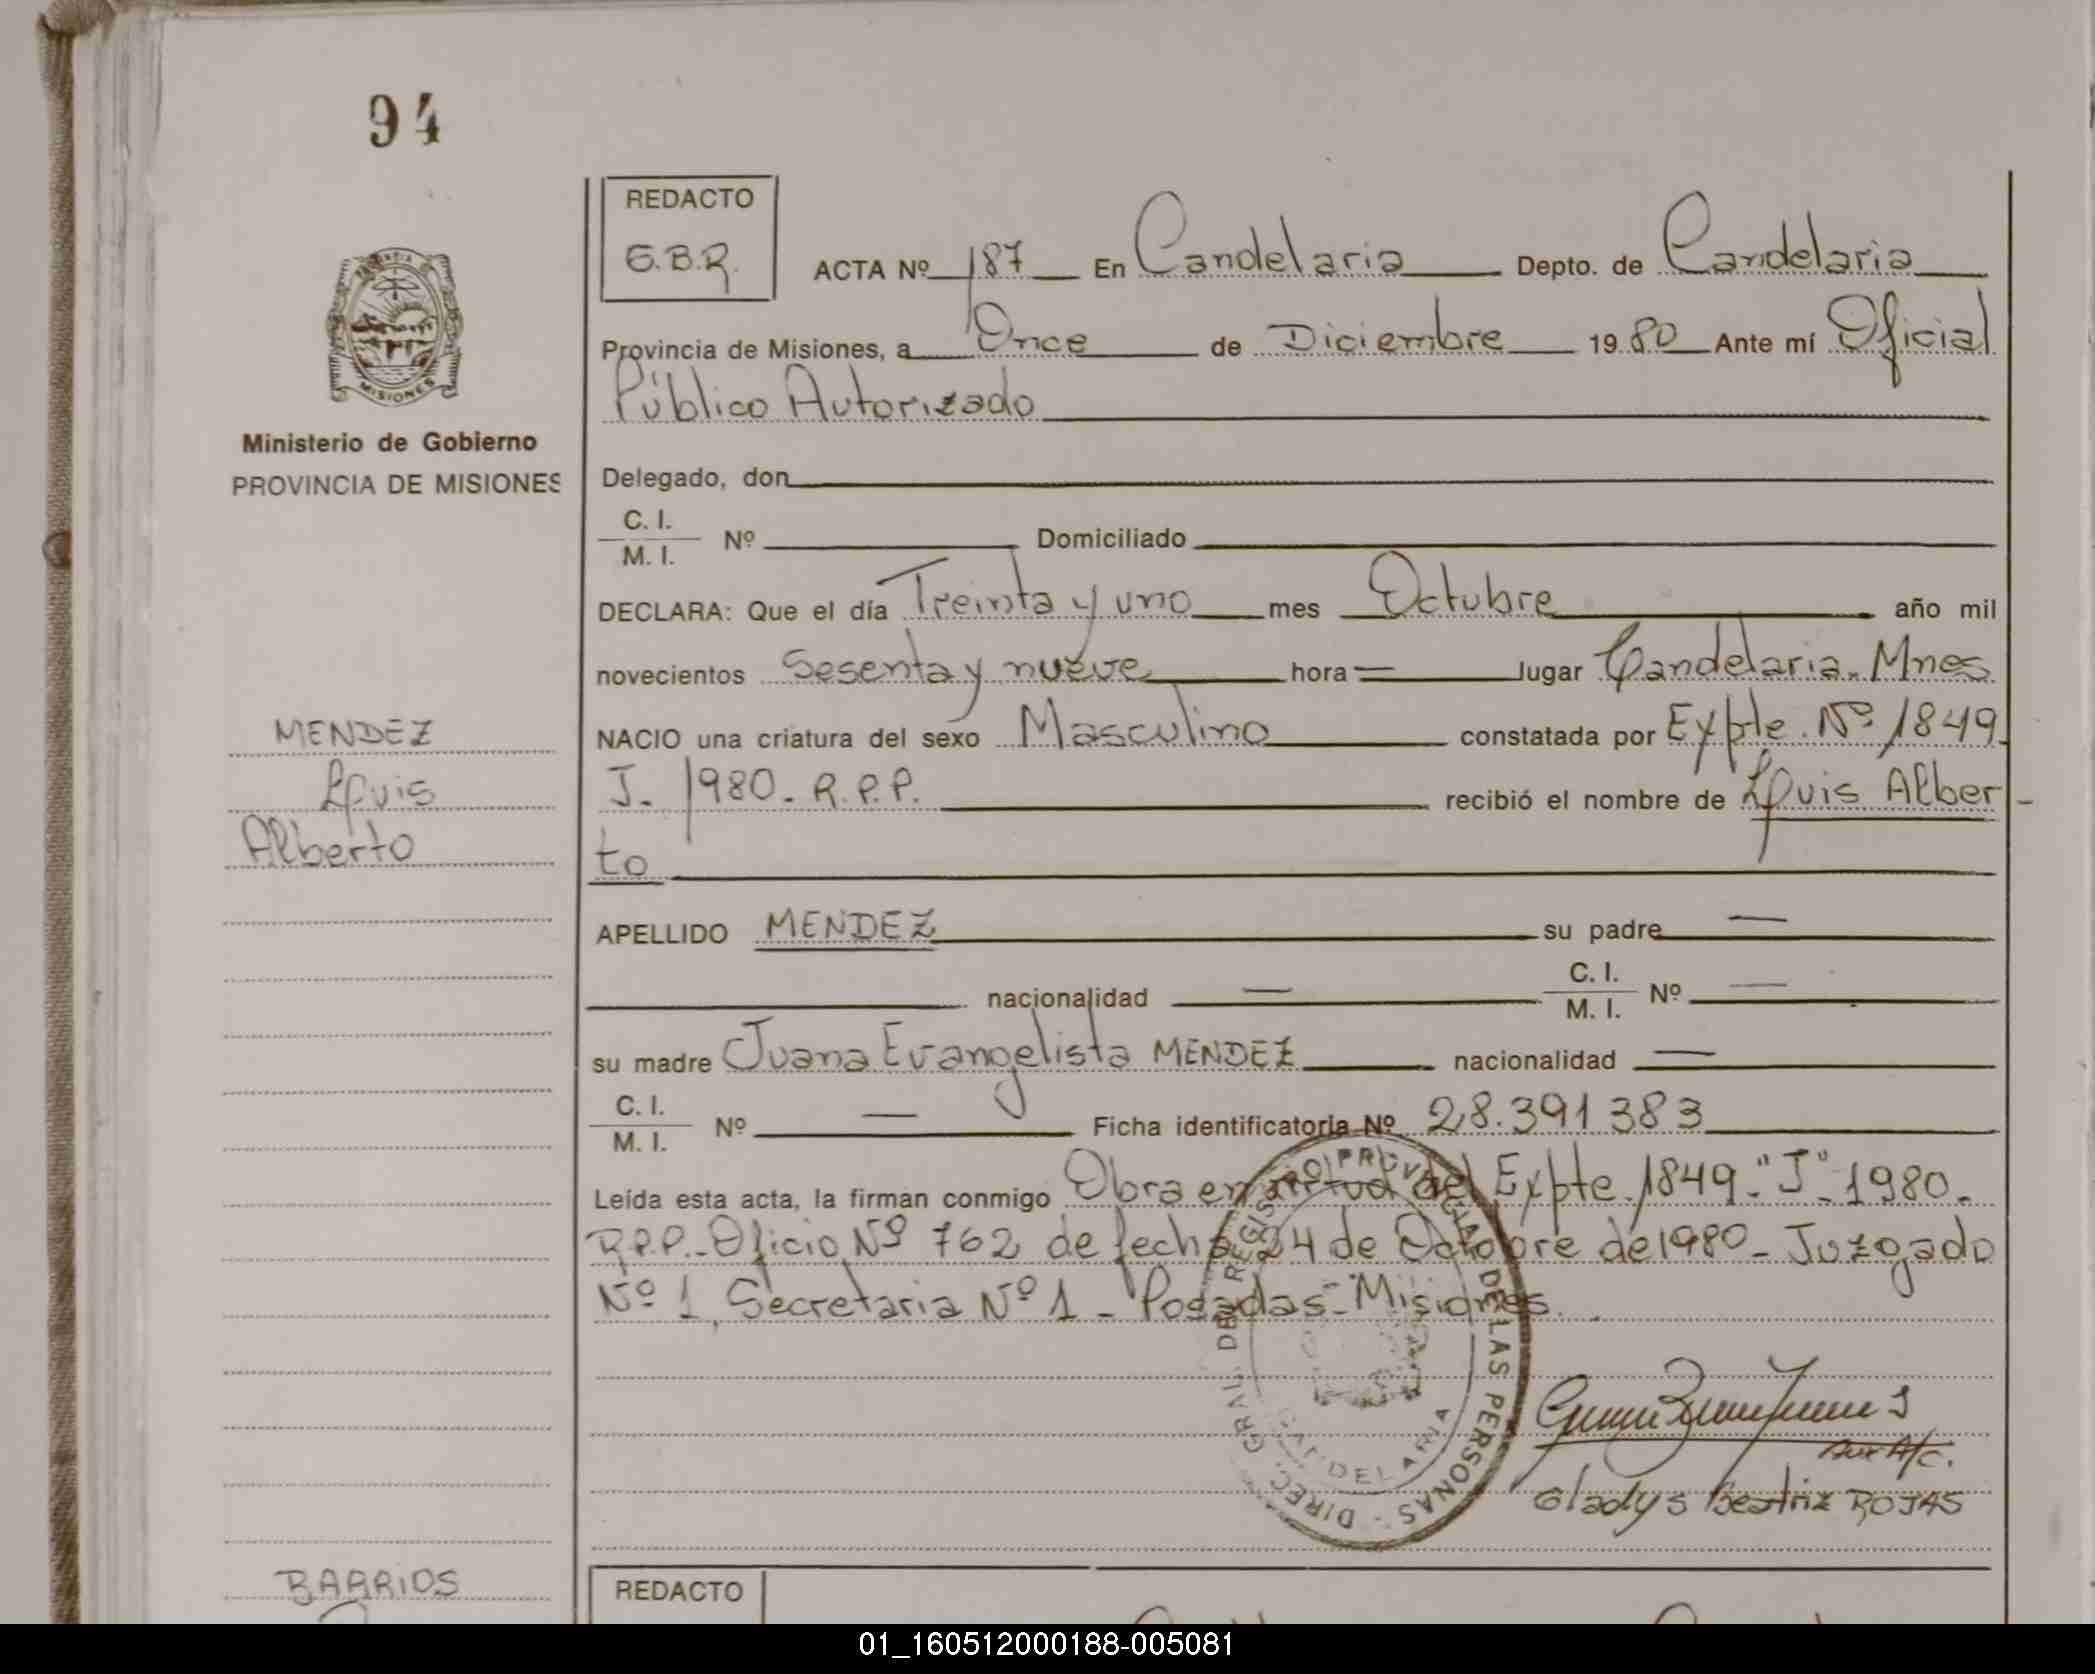 94
REDACTO
G.B.R.
ACTA Nº 187 En Candelaria Depto. de Candelaria
Provincia de Misiones, a Once de Diciembre 1980 Ante mí Oficial
Público Autorizado
Ministerio de Gobierno
PROVINCIA DE MISIONES
Delegado, don
C. I.
M. I. Nº Domiciliado
DECLARA: Que el día Treinta y uno mes Octubre año mil
novecientos Sesenta y nueve hora = Jugar Candelaria. Mnes.
MENDEZ
Luis
Alberto
NACIO una criatura del sexo Masculino constatada por Expte. Nº 1849.
J. 1980. R.P.P. recibió el nombre de Luis Alber-
to
APELLIDO MENDEZ su padre —
nacionalidad — C. I.
M. I. Nº —
su madre Juana Evangelista MENDEZ nacionalidad —
C. I.
M. I. Nº — Ficha identificatoria Nº 28.391383
Leída esta acta, la firman conmigo Obra en virtud del Expte. 1849-"J"-1980.
R.P.P.-Oficio Nº 762 de fecha 24 de Octobre de 1980- Juzgado
Nº 1, Secretaria Nº 1 - Posadas- Misiones.
DIREC. GRAL. DEL REGISTRO PROVINCIAL DE LAS PERSONAS -
CANDELARIA
Aux A/c.
Gladys Beatriz ROJAS
BARRIOS
REDACTO
01_160512000188-005081